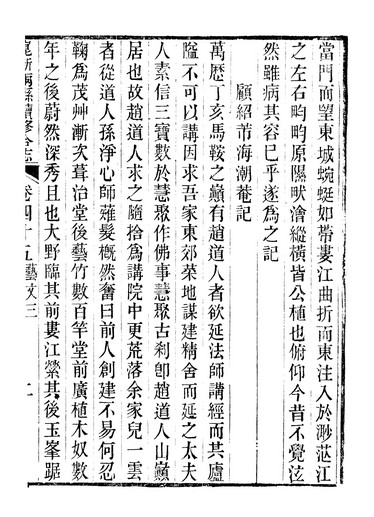 當門而望東城蜿蜒如帶婁江曲折而東注入於渺茫江
之左右畇畇原隰畎澮縱橫皆公植也俯仰今昔不覺泫
然雖病其容已乎遂爲之記
顧紹芾海潮菴記
萬歷丁亥馬鞍之巔有趙道人者欲延法師講經而其廬
隘不可以講因求吾家東郊菜地謀建精舍而延之太夫
人素信三寶數於慧聚作佛事慧聚古刹卽趙道人山巔
居也故趙道人求之隨捨爲講院中更荒落余家兒一雲
者從道人孫淨心師薙髮槪然奮曰前人創建不易何忍
鞠爲茂草漸次葺治堂後藝竹數百竿堂前廣植木奴數
年之後蔚然深秀且也大野臨其前婁江縈其後玉峯踞
崑新兩縣續修合志
卷四十五藝文三
二